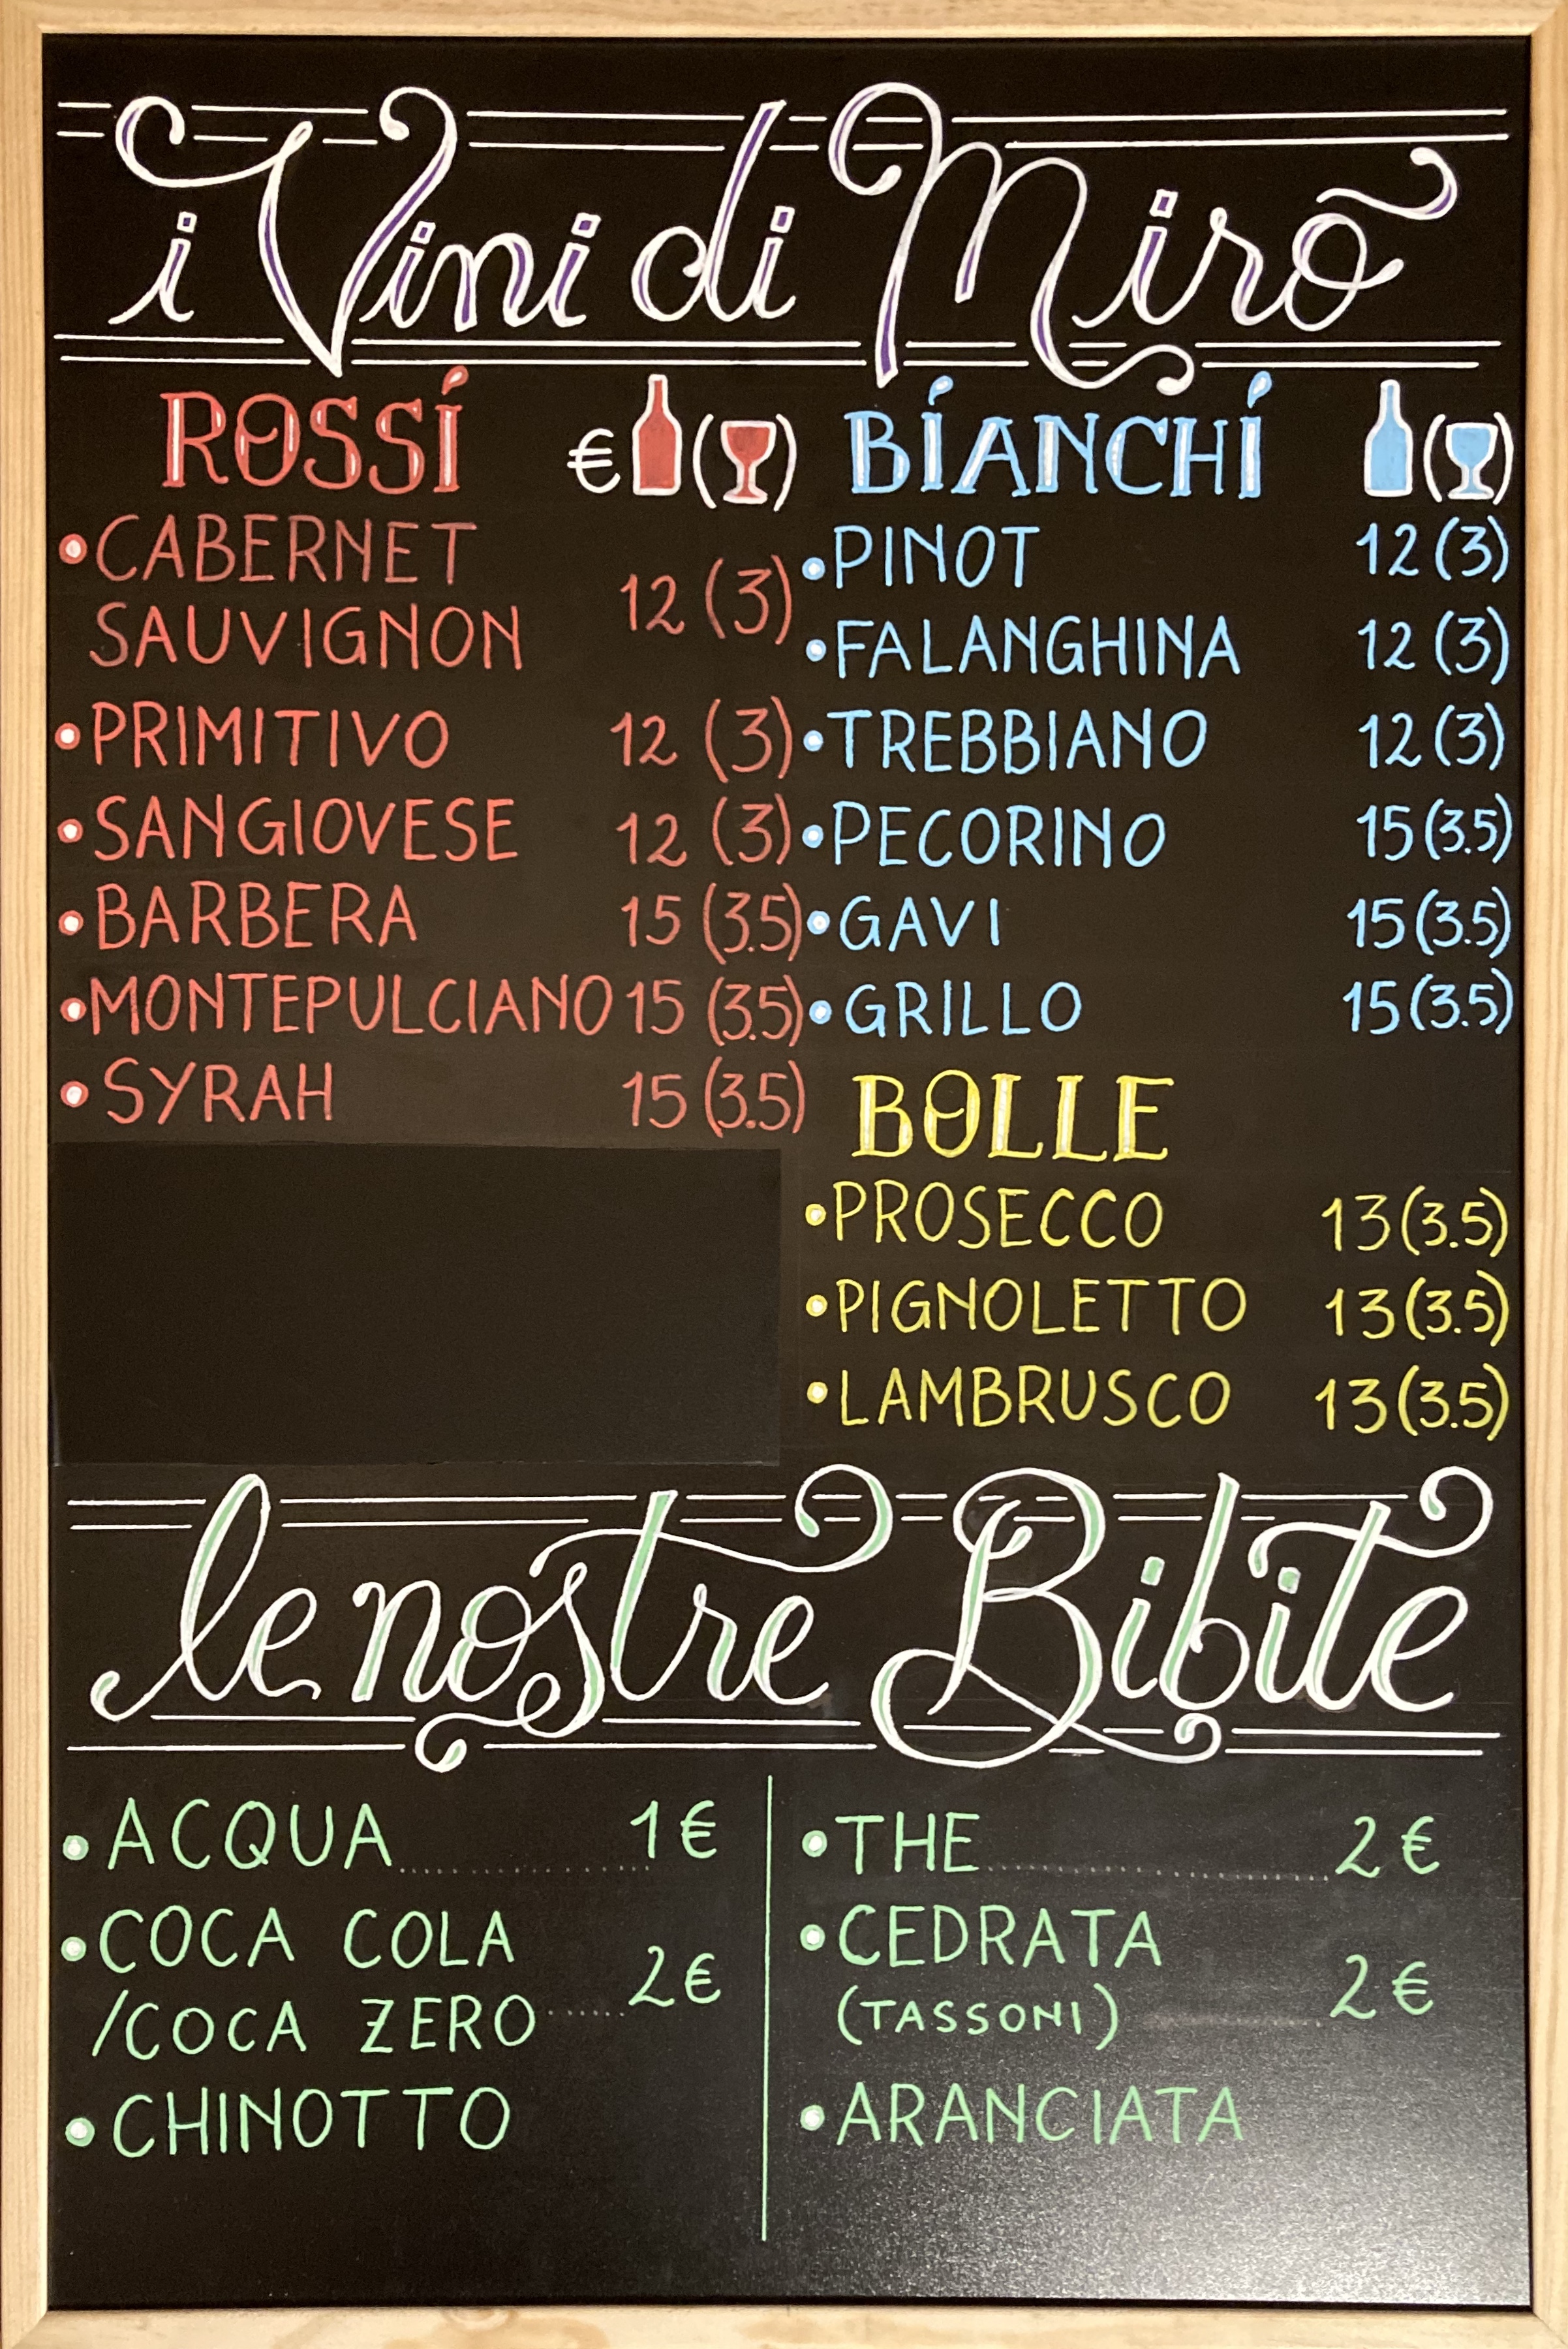 i Vini di Mirò
ROSSI € ( )
CABERNET
SAUVIGNON 12 (3)
PRIMITIVO 12 (3)
SANGIOVESE 12 (3)
BARBERA 15 (3.5)
MONTEPULCIANO 15 (3.5)
SYRAH 15 (3.5)
BIANCHI ( )
PINOT 12 (3)
FALANGHINA 12 (3)
TREBBIANO 12 (3)
PECORINO 15 (3.5)
GAVI 15 (3.5)
GRILLO 15 (3.5)
BOLLE
PROSECCO 13 (3.5)
PIGNOLETTO 13 (3.5)
LAMBRUSCO 13 (3.5)
le nostre Bibite
ACQUA 1 €
COCA COLA
/COCA ZERO 2 €
CHINOTTO
THE 2 €
CEDRATA
(TASSONI) 2 €
ARANCIATA